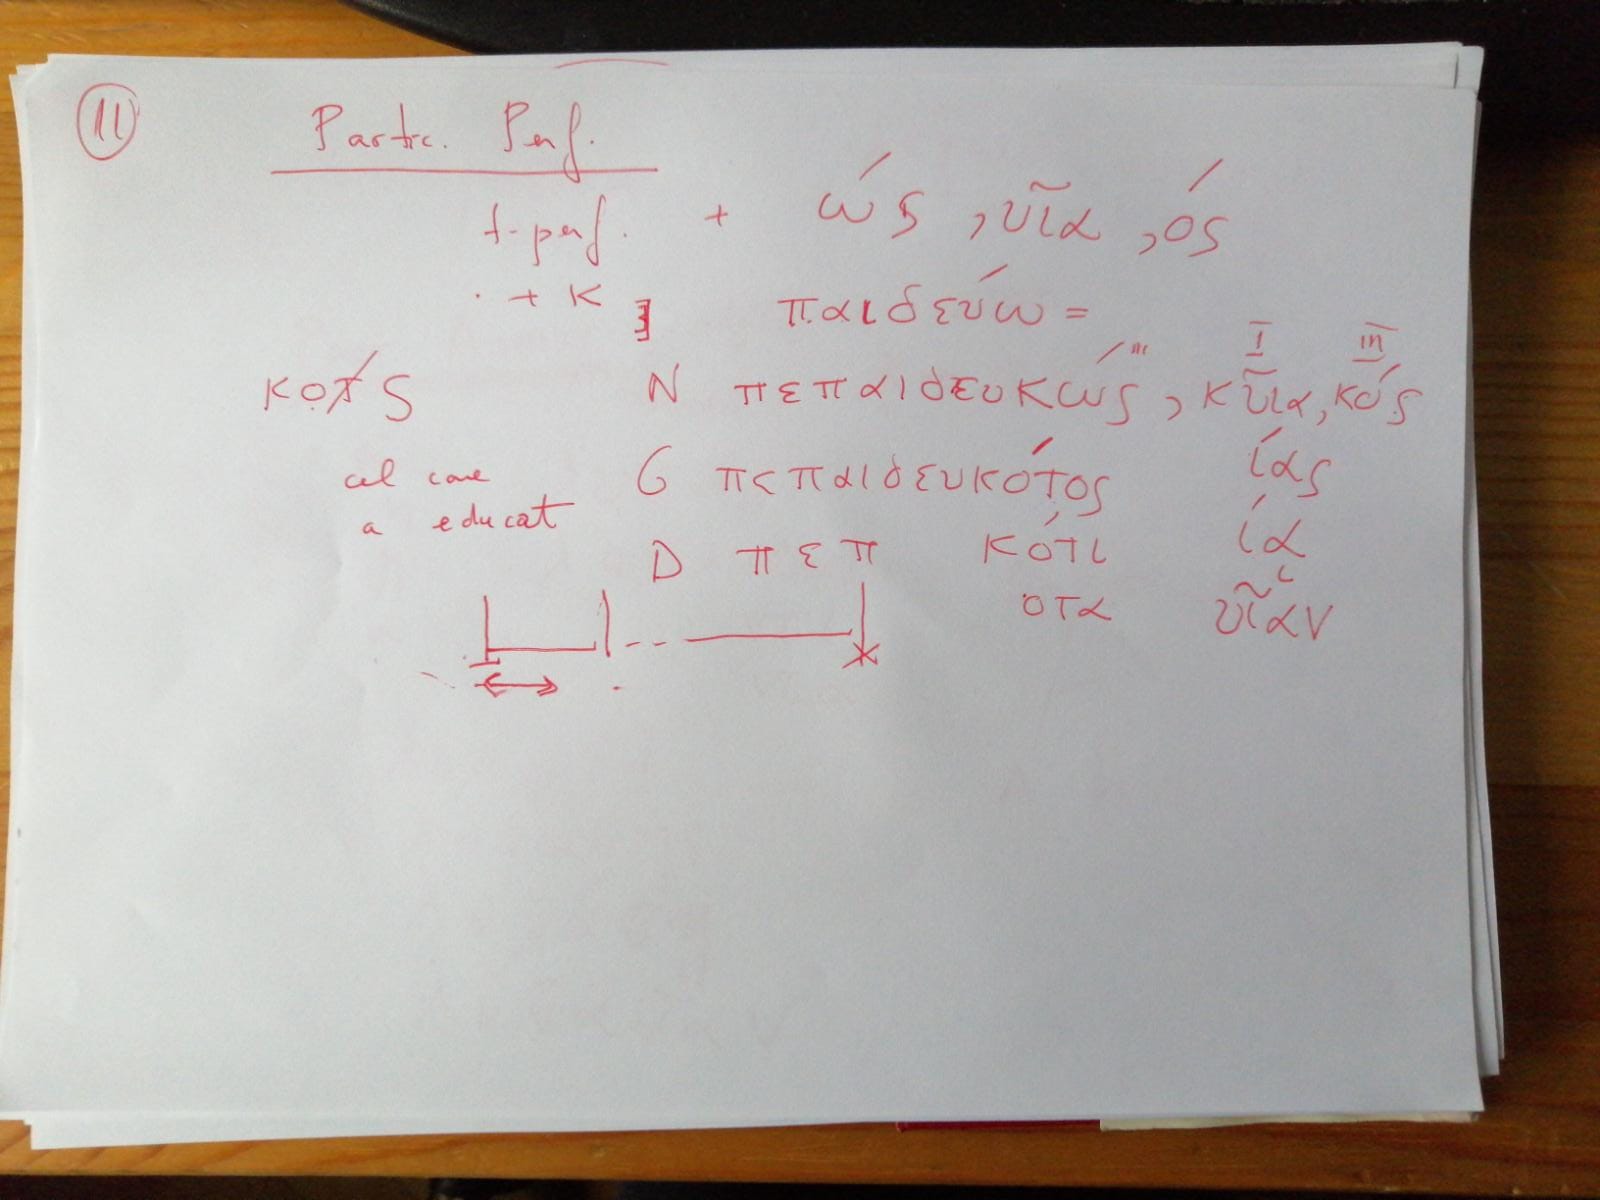 11
Partic. Perf.
t-perf. + ώς, υῖα, ός
+ κ ] παιδεύω =
III I III
κοτς N πεπαιδευκώς, κυῖα, κός
G πεπαιδευκότος ίας
cel care
a educat
D πεπ κότι ίᾳ
οτα υῖαν